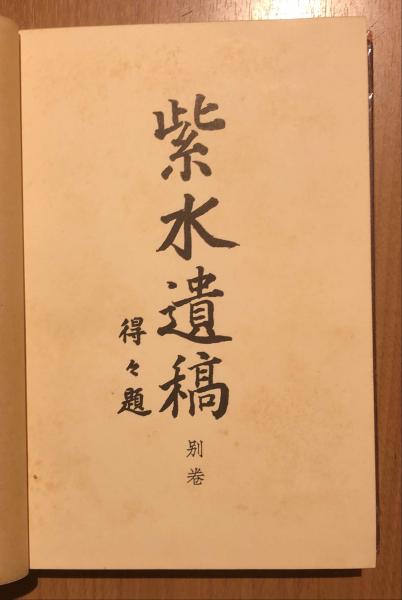 紫水遺稿
別巻
得々題